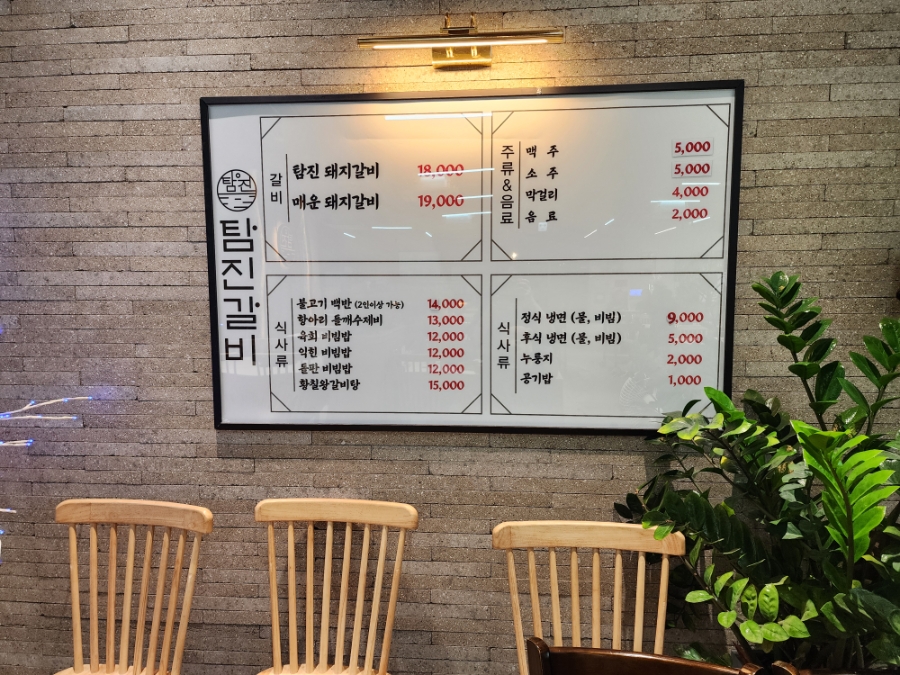 탐진
탐진갈비
갈비
탐진 돼지갈비 18,000
매운 돼지갈비 19,000
주류&음료
맥 주 5,000
소 주 5,000
막걸리 4,000
음 료 2,000
식사류
불고기 백반 (2인이상 가능) 14,000
항아리 들깨수제비 13,000
육회 비빔밥 12,000
익힌 비빔밥 12,000
돌판 비빔밥 12,000
황칠왕갈비탕 15,000
식사류
정식 냉면 (물, 비빔) 9,000
후식 냉면 (물, 비빔) 5,000
누룽지 2,000
공기밥 1,000